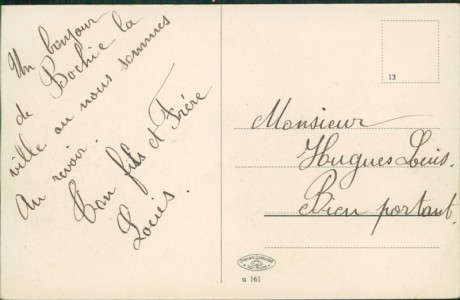 Un bonjour
de Bochie la
ville ou nous sommes
Au revoir.
Ton fils et Frère
Louis.
13
Monsieur
Hugues Louis.
Bien portant.
n 161